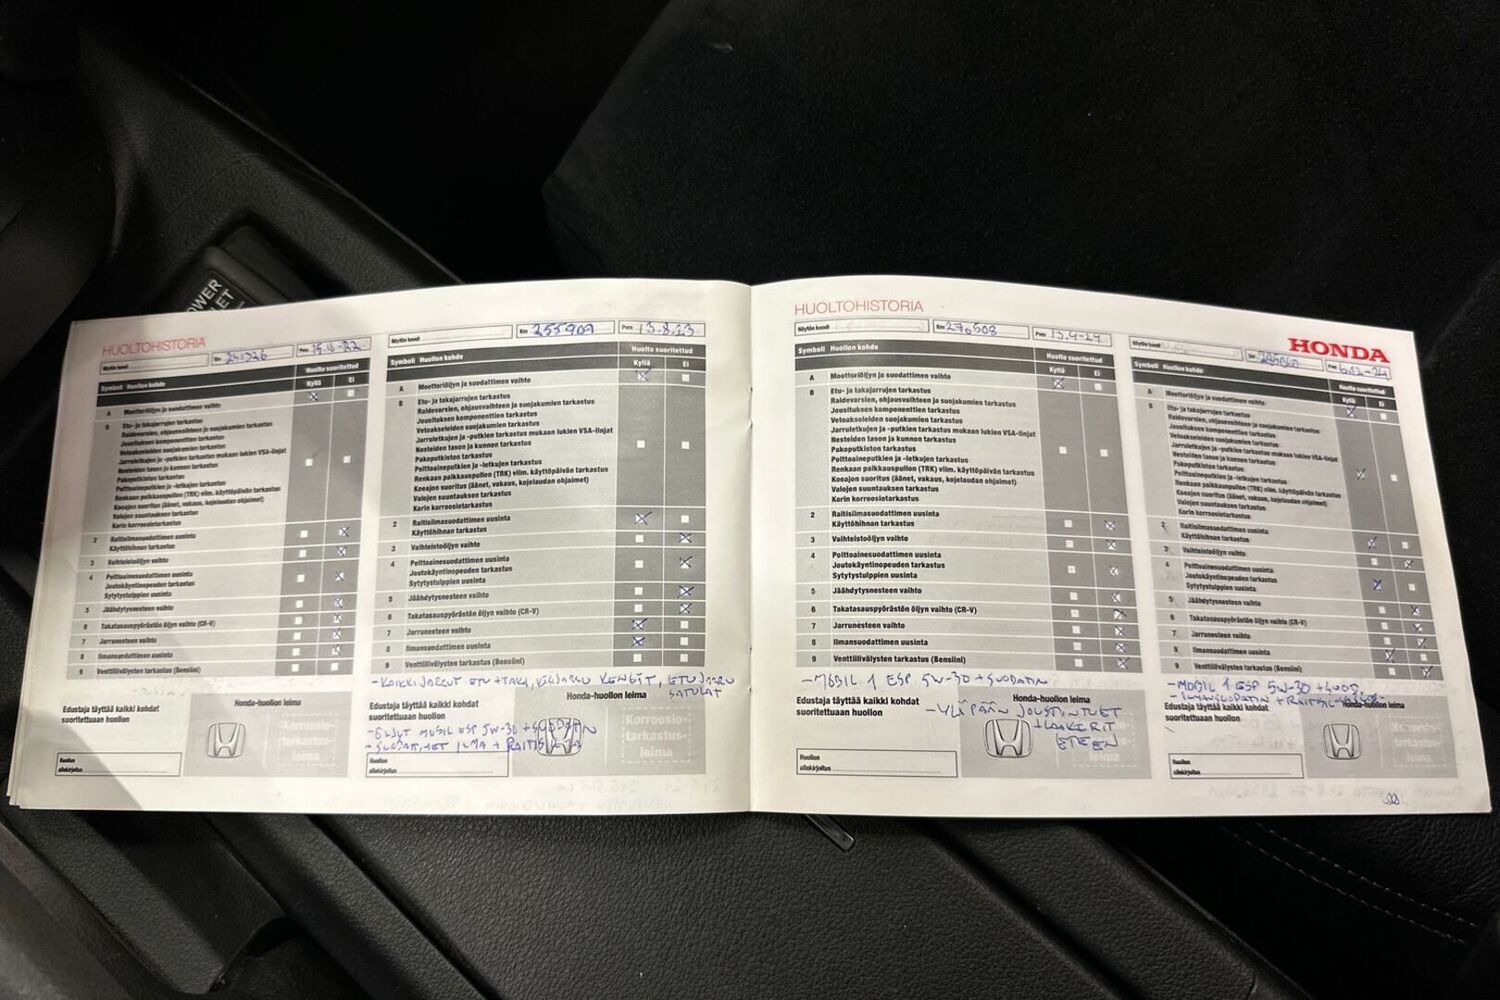 OWER
LET
HUOLTOHISTORIA
Näytön koodi
Km 241326
Pvm 15.10-22
Symboli Huollon kohde
Huolto suoritettud
Kyllä Ei
A Moottoriöljyn ja suodattimen vaihto
B Etu- ja takajarrujen tarkastus
Raidevarsien, ohjausvaihteen ja suojakumien tarkastus
Jousituksen komponenttien tarkastus
Vetoakseleiden suojakumien tarkastus
Jarruletkujen ja -putkien tarkastus mukaan lukien VSA-linjat
Nesteiden tason ja kunnon tarkastus
Pakoputkiston tarkastus
Polttoaineputkien ja -letkujen tarkastus
Renkaan paikkauspullon (TRK) viim. käyttöpäivän tarkastus
Koeajon suoritus (äänet, vakaus, kojelaudan ohjaimet)
Valojen suuntauksen tarkastus
Korin korroosiotarkastus
2 Raitisilmasuodattimen uusinta
Käyttöhihnan tarkastus
3 Vaihteistoöljyn vaihto
4 Polttoainesuodattimen uusinta
Joutokäyntinopeuden tarkastus
Sytytystulppien uusinta
5 Jäähdytysnesteen vaihto
6 Takatasauspyörästön öljyn vaihto (CR-V)
7 Jarrunesteen vaihto
8 Ilmansuodattimen uusinta
9 Venttiilivälysten tarkastus (Bensiini)
Edustaja täyttää kaikki kohdat
suoritettuaan huollon
Honda-huollon leima
Korroosio-
tarkastus-
leima
Huollon
allekirjoitus
Näytön koodi
Km 255909
Pvm 13.8.23
Symboli Huollon kohde
Huolto suoritettud
Kyllä Ei
A Moottoriöljyn ja suodattimen vaihto
B Etu- ja takajarrujen tarkastus
Raidevarsien, ohjausvaihteen ja suojakumien tarkastus
Jousituksen komponenttien tarkastus
Vetoakseleiden suojakumien tarkastus
Jarruletkujen ja -putkien tarkastus mukaan lukien VSA-linjat
Nesteiden tason ja kunnon tarkastus
Pakoputkiston tarkastus
Polttoaineputkien ja -letkujen tarkastus
Renkaan paikkauspullon (TRK) viim. käyttöpäivän tarkastus
Koeajon suoritus (äänet, vakaus, kojelaudan ohjaimet)
Valojen suuntauksen tarkastus
Korin korroosiotarkastus
2 Raitisilmasuodattimen uusinta
Käyttöhihnan tarkastus
3 Vaihteistoöljyn vaihto
4 Polttoainesuodattimen uusinta
Joutokäyntinopeuden tarkastus
Sytytystulppien uusinta
5 Jäähdytysnesteen vaihto
6 Takatasauspyörästön öljyn vaihto (CR-V)
7 Jarrunesteen vaihto
8 Ilmansuodattimen uusinta
9 Venttiilivälysten tarkastus (Bensiini)
- KAIKKI JARRUT ETU + TAKA, KÄSIJARRU KENGÄT, ETUJARRU
SATULAT
Edustaja täyttää kaikki kohdat
suoritettuaan huollon
Honda-huollon leima
- ÖLJYT MOBIL ESP 5W-30 + SUODATIN
- SUODATTIMET ILMA + RAITISILMA
Korroosio-
tarkastus-
leima
Huollon
allekirjoitus
HUOLTOHISTORIA
Näytön koodi
Km 270508
Pvm 13.4-24
Symboli Huollon kohde
Huolto suoritettud
Kyllä Ei
A Moottoriöljyn ja suodattimen vaihto
B Etu- ja takajarrujen tarkastus
Raidevarsien, ohjausvaihteen ja suojakumien tarkastus
Jousituksen komponenttien tarkastus
Vetoakseleiden suojakumien tarkastus
Jarruletkujen ja -putkien tarkastus mukaan lukien VSA-linjat
Nesteiden tason ja kunnon tarkastus
Pakoputkiston tarkastus
Polttoaineputkien ja -letkujen tarkastus
Renkaan paikkauspullon (TRK) viim. käyttöpäivän tarkastus
Koeajon suoritus (äänet, vakaus, kojelaudan ohjaimet)
Valojen suuntauksen tarkastus
Korin korroosiotarkastus
2 Raitisilmasuodattimen uusinta
Käyttöhihnan tarkastus
3 Vaihteistoöljyn vaihto
4 Polttoainesuodattimen uusinta
Joutokäyntinopeuden tarkastus
Sytytystulppien uusinta
5 Jäähdytysnesteen vaihto
6 Takatasauspyörästön öljyn vaihto (CR-V)
7 Jarrunesteen vaihto
8 Ilmansuodattimen uusinta
9 Venttiilivälysten tarkastus (Bensiini)
- MOBIL 1 ESP 5W-30 + SUODATIN
Edustaja täyttää kaikki kohdat
suoritettuaan huollon
Honda-huollon leima
- YLÄPÄÄN JOUSTINTUET
+ LAAKERIT
ETEEN
Korroosio-
tarkastus-
leima
Huollon
allekirjoitus
HONDA
Näytön koodi
Km
Pvm 6.12-24
Symboli Huollon kohde
Huolto suoritettud
Kyllä Ei
A Moottoriöljyn ja suodattimen vaihto
B Etu- ja takajarrujen tarkastus
Raidevarsien, ohjausvaihteen ja suojakumien tarkastus
Jousituksen komponenttien tarkastus
Vetoakseleiden suojakumien tarkastus
Jarruletkujen ja -putkien tarkastus mukaan lukien VSA-linjat
Nesteiden tason ja kunnon tarkastus
Pakoputkiston tarkastus
Polttoaineputkien ja -letkujen tarkastus
Renkaan paikkauspullon (TRK) viim. käyttöpäivän tarkastus
Koeajon suoritus (äänet, vakaus, kojelaudan ohjaimet)
Valojen suuntauksen tarkastus
Korin korroosiotarkastus
2 Raitisilmasuodattimen uusinta
Käyttöhihnan tarkastus
3 Vaihteistoöljyn vaihto
4 Polttoainesuodattimen uusinta
Joutokäyntinopeuden tarkastus
Sytytystulppien uusinta
5 Jäähdytysnesteen vaihto
6 Takatasauspyörästön öljyn vaihto (CR-V)
7 Jarrunesteen vaihto
8 Ilmansuodattimen uusinta
9 Venttiilivälysten tarkastus (Bensiini)
- MOBIL 1 ESP 5W-30 + SUOD.
Edustaja täyttää kaikki kohdat
suoritettuaan huollon
Honda-huollon leima
tarkastus-
leima
Huollon
allekirjoitus